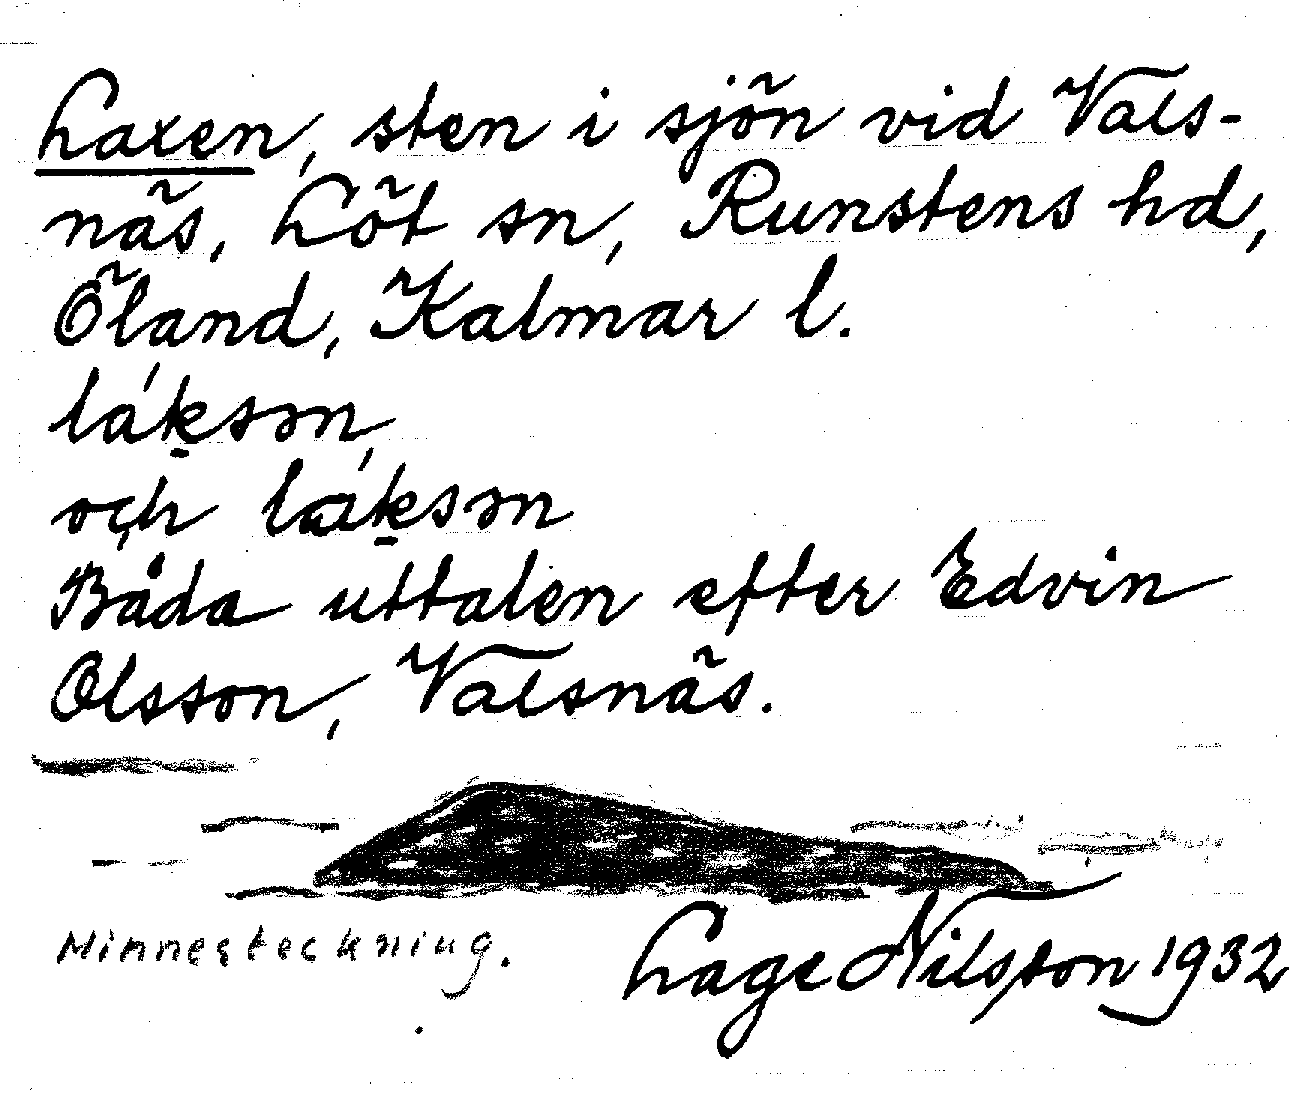 Laxen, sten i sjön vid Vals-
näs, Löt sn, Runstens hd,
Öland, Kalmar l.
lák̠sən,
och lák̠sən
Båda uttalen efter Edvin
Olsson, Valsnäs.
Minnesteckning.
Lage Nilsson 1932